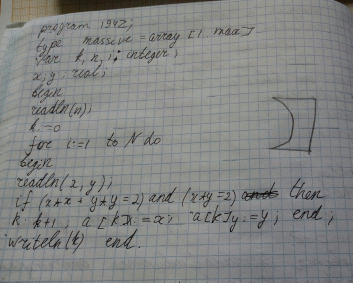 program 1942;
type massive = array [1. max]
var k, n, i: integer;
x, y: real;
begin
readln(n);
k:=0
for i:=1 to N do
begin
readln(x, y);
if (x*x + y*y = 2) and (x+y = 2) then
k: k+1; a[k]x:=x; a[k]y:=y; end;
writeln(k) end.